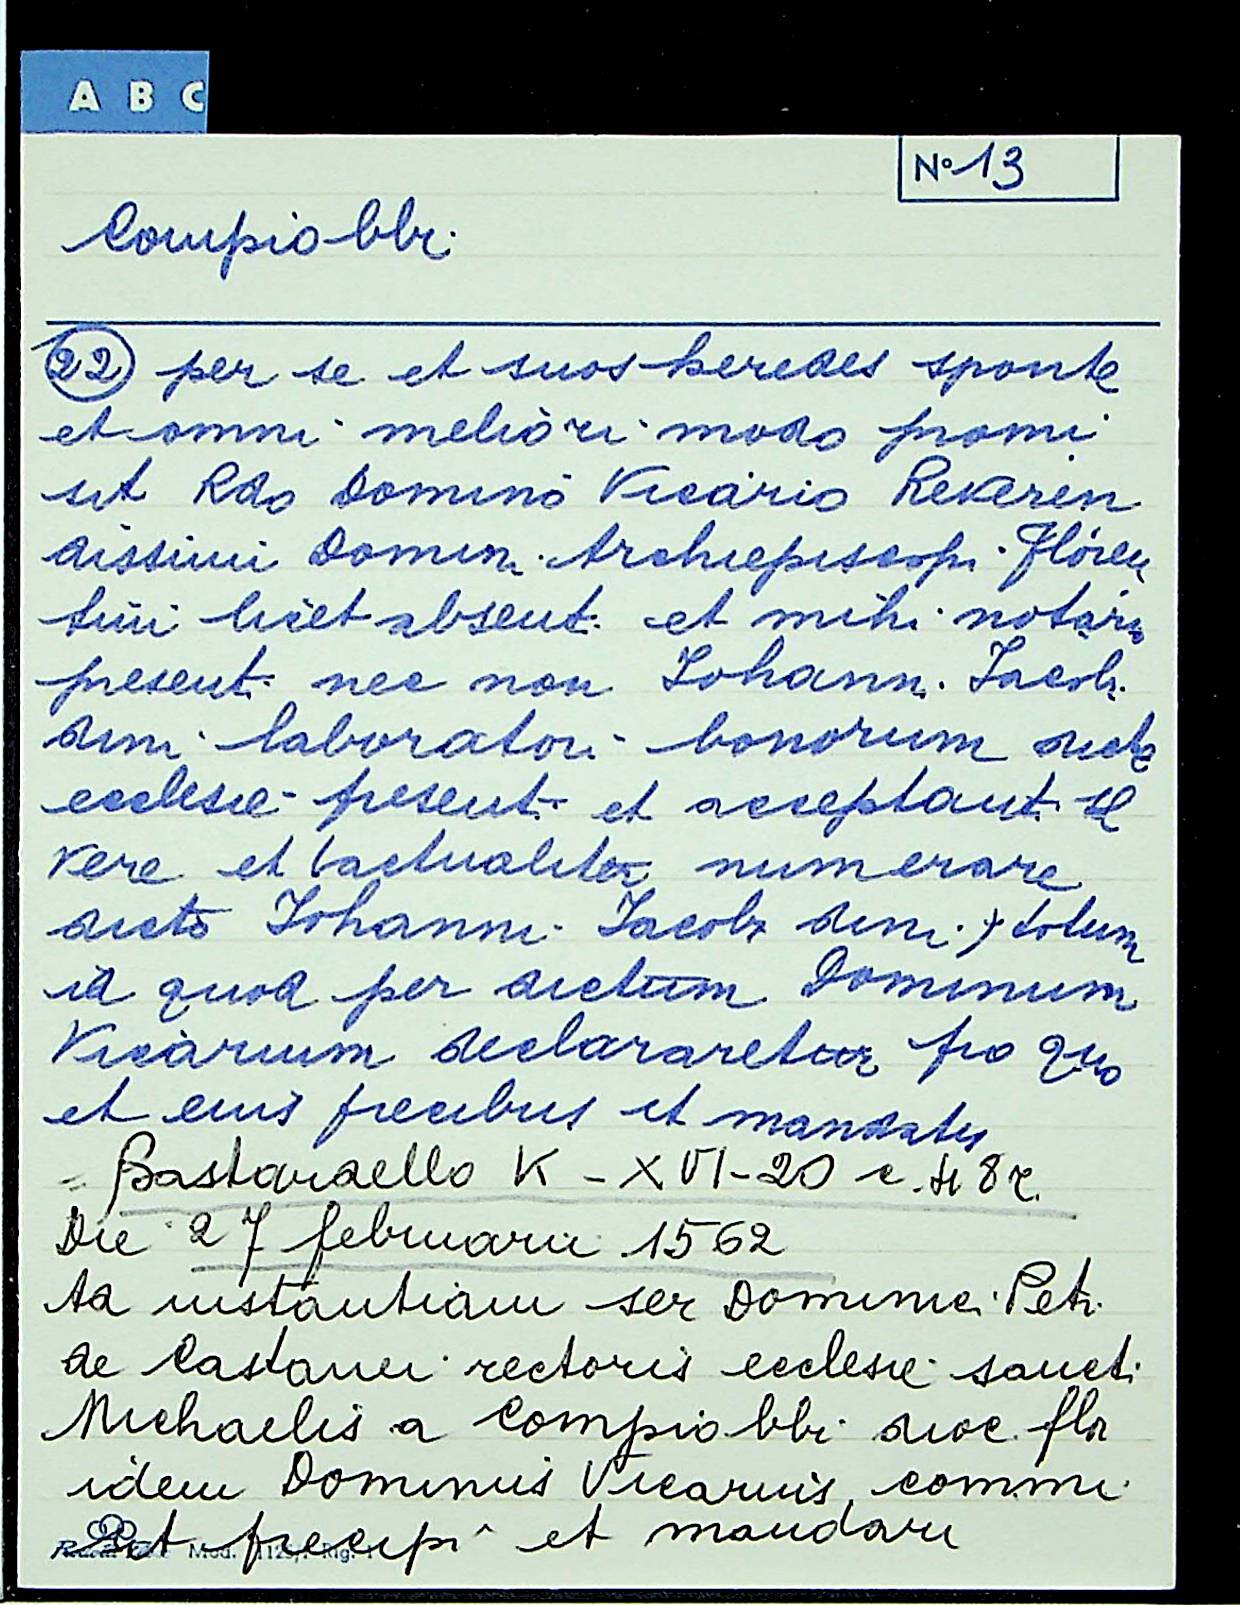 A B C
N° 13
Compiobbi
22 per se et suos heredes sponte
et omni meliori modo promi
sit Rdo Domino Vicario Reveren
dissimi Domin. Archiepiscopi Floren
tini licet absent. et mihi notario
present. nec non Johann. Jacob.
dini laboratori bonorum dicte
ecclesie present. et acceptant.
vere et tactualiter numerare
dicto Johanni Jacobi dini totum
id quod per dictum Dominum
Vicarium declararetur pro quo
et eius precibus et mandatis
= Bastardello V - XVI - 20 c. 48 r.
Die 27 februarii 1562
Ad instantiam ser Dominici Petri
de Castanei rectoris ecclesie sancti
Michaelis a Compiobbi dioc. flor
idem Dominus Vicarius commi
sit precipi et mandari